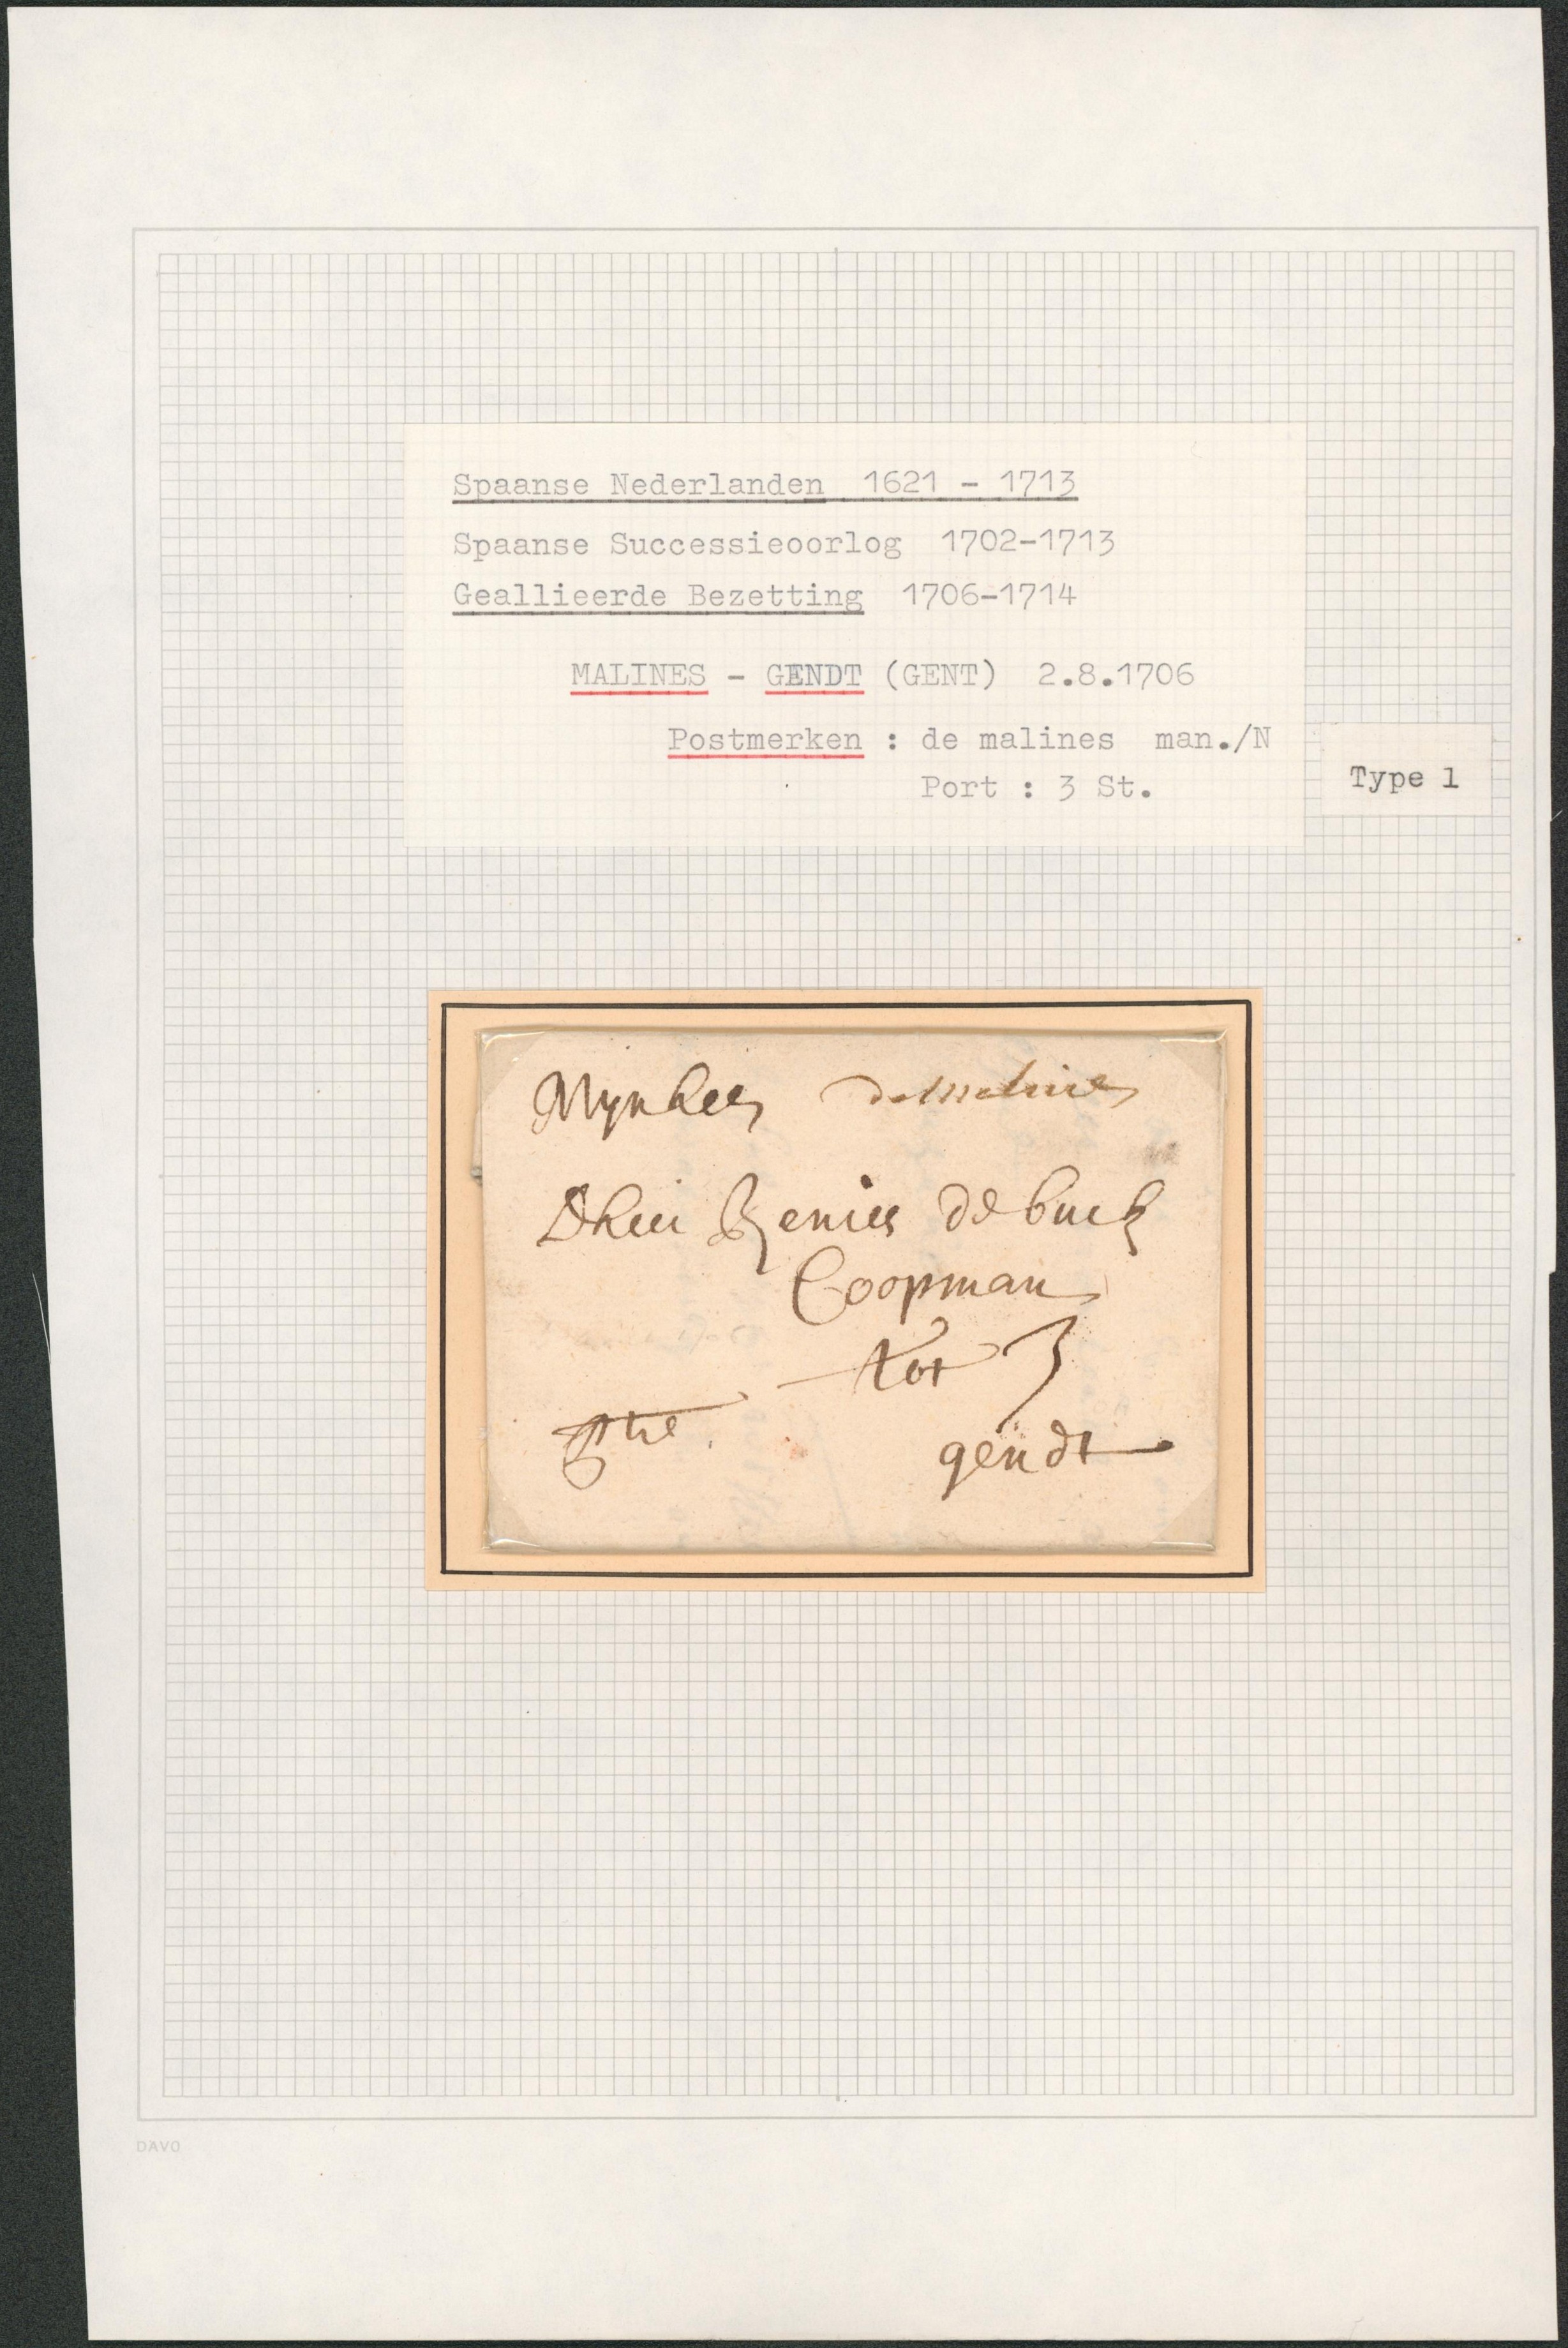 Spaanse Nederlanden 1621 - 1713
Spaanse Successieoorlog 1702-1713
Geallieerde Bezetting 1706-1714
MALINES - GENDT (GENT) 2.8.1706
Postmerken : de malines man./N
Port : 3 St.
Type 1
Mynheer de Malines
Dheer Renier de buck
Coopman
tot 3
gendt
DAVO